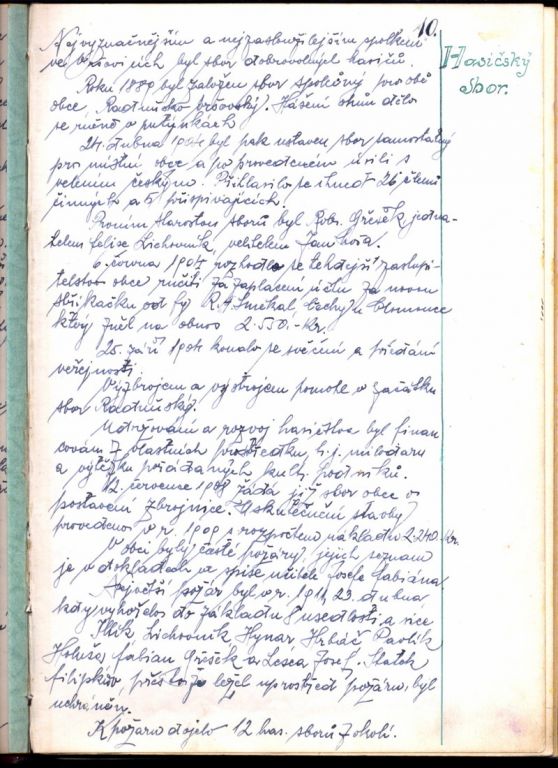 10.
Hasičský
sbor.
Nejvýznačnějším a nejzasloužilejším spolkem
ve              byl sbor dobrovolných hasičů.
Roku 1889 byl založen sbor společný pro obě
obce, Radnučko            . Hlášení ohňů dělo
se ručně o putýnkách
24. dubna 1904 byl pak ustaven sbor samostatný
pro místní obec a po provedeném úsilí s
velením českým. Přihlásilo se ihned 26 členů
činných a 5 přispívajících.
Prvním starostou sboru byl Rob. Gřešek jedna-
telem Felix Lichovník, velitelem Jan
6. června 1904 rozhodlo se tehdejší zastupi-
telstvo obce ručiti za zaplacení účtu za novou
stříkačku od fy R. A. Smékal, Čechy u Olomouce
který zněl na obnos 2.530.- Kr.
25. září 1904 konalo se svěcení a předání
veřejnosti.
Výzbrojem a výstrojem pomohl v začátku
sbor Radnušký.
Udržování a rozvoj hasičstva byl finan
cován z vlastních prostředků, t.j. milodarů
a výtěžku pořádaných kult. podniků.
12. července 1908 žádá již sbor obce o
postavení zbrojnice. Uskutečnění stavby
provedeno v r. 1909 s rozpočtem nákladu 2.240 Kr.
V obci byly časté požáry, jejich seznam
je v dokladech ve spise učitele Josefa Fabiána
Největší požár byl v r. 1911, 23. dubna
kdy vyhořelo do základu 8 usedlostí a sice
Illík Lichovník Hynar Hrbáč Pavlík
Holuša, Fabian Gřešek a Lesca Josef. Statek
Filipkův, přestože ležel uprostřed požáru, byl
uchráněn.
K požáru dojelo 12 has. sborů z okolí.